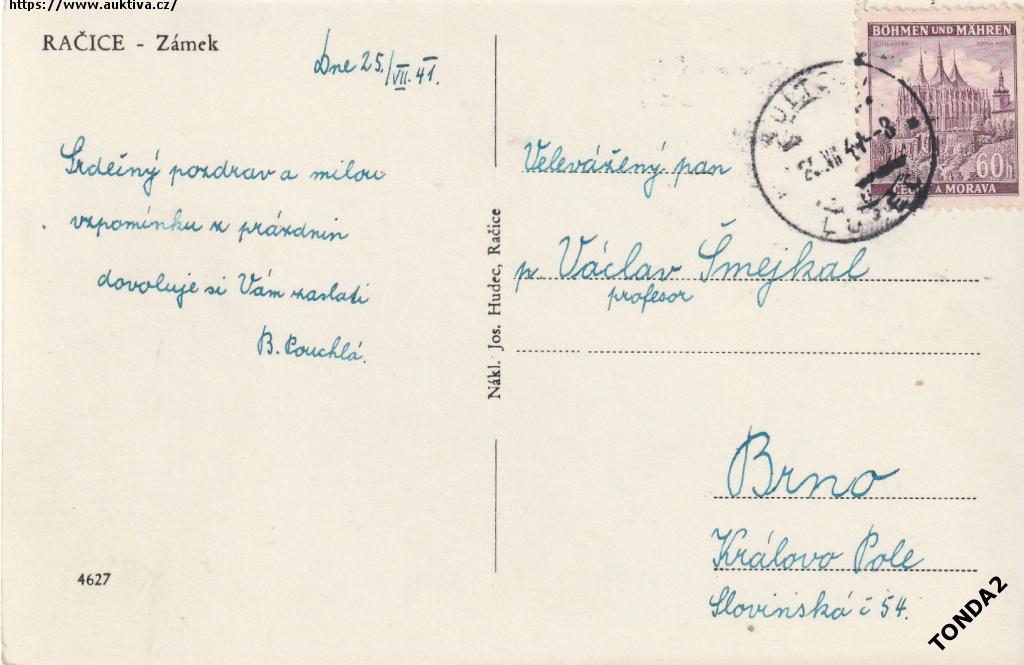 https://www.auktiva.cz/
RAČICE - Zámek
Dne 25./VII. 41.
Srdečný pozdrav a milou
vzpomínku z prázdnin
dovoluje si Vám zaslati
B. Pouchlá.
4627
Nákl. Jos. Hudec, Račice
BÖHMEN UND MÄHREN
60h
ČECHY A MORAVA
Velevážený pan
p. Václav Šmejkal
profesor
Brno
Královo Pole
Slovinská č 54.
TONDA2